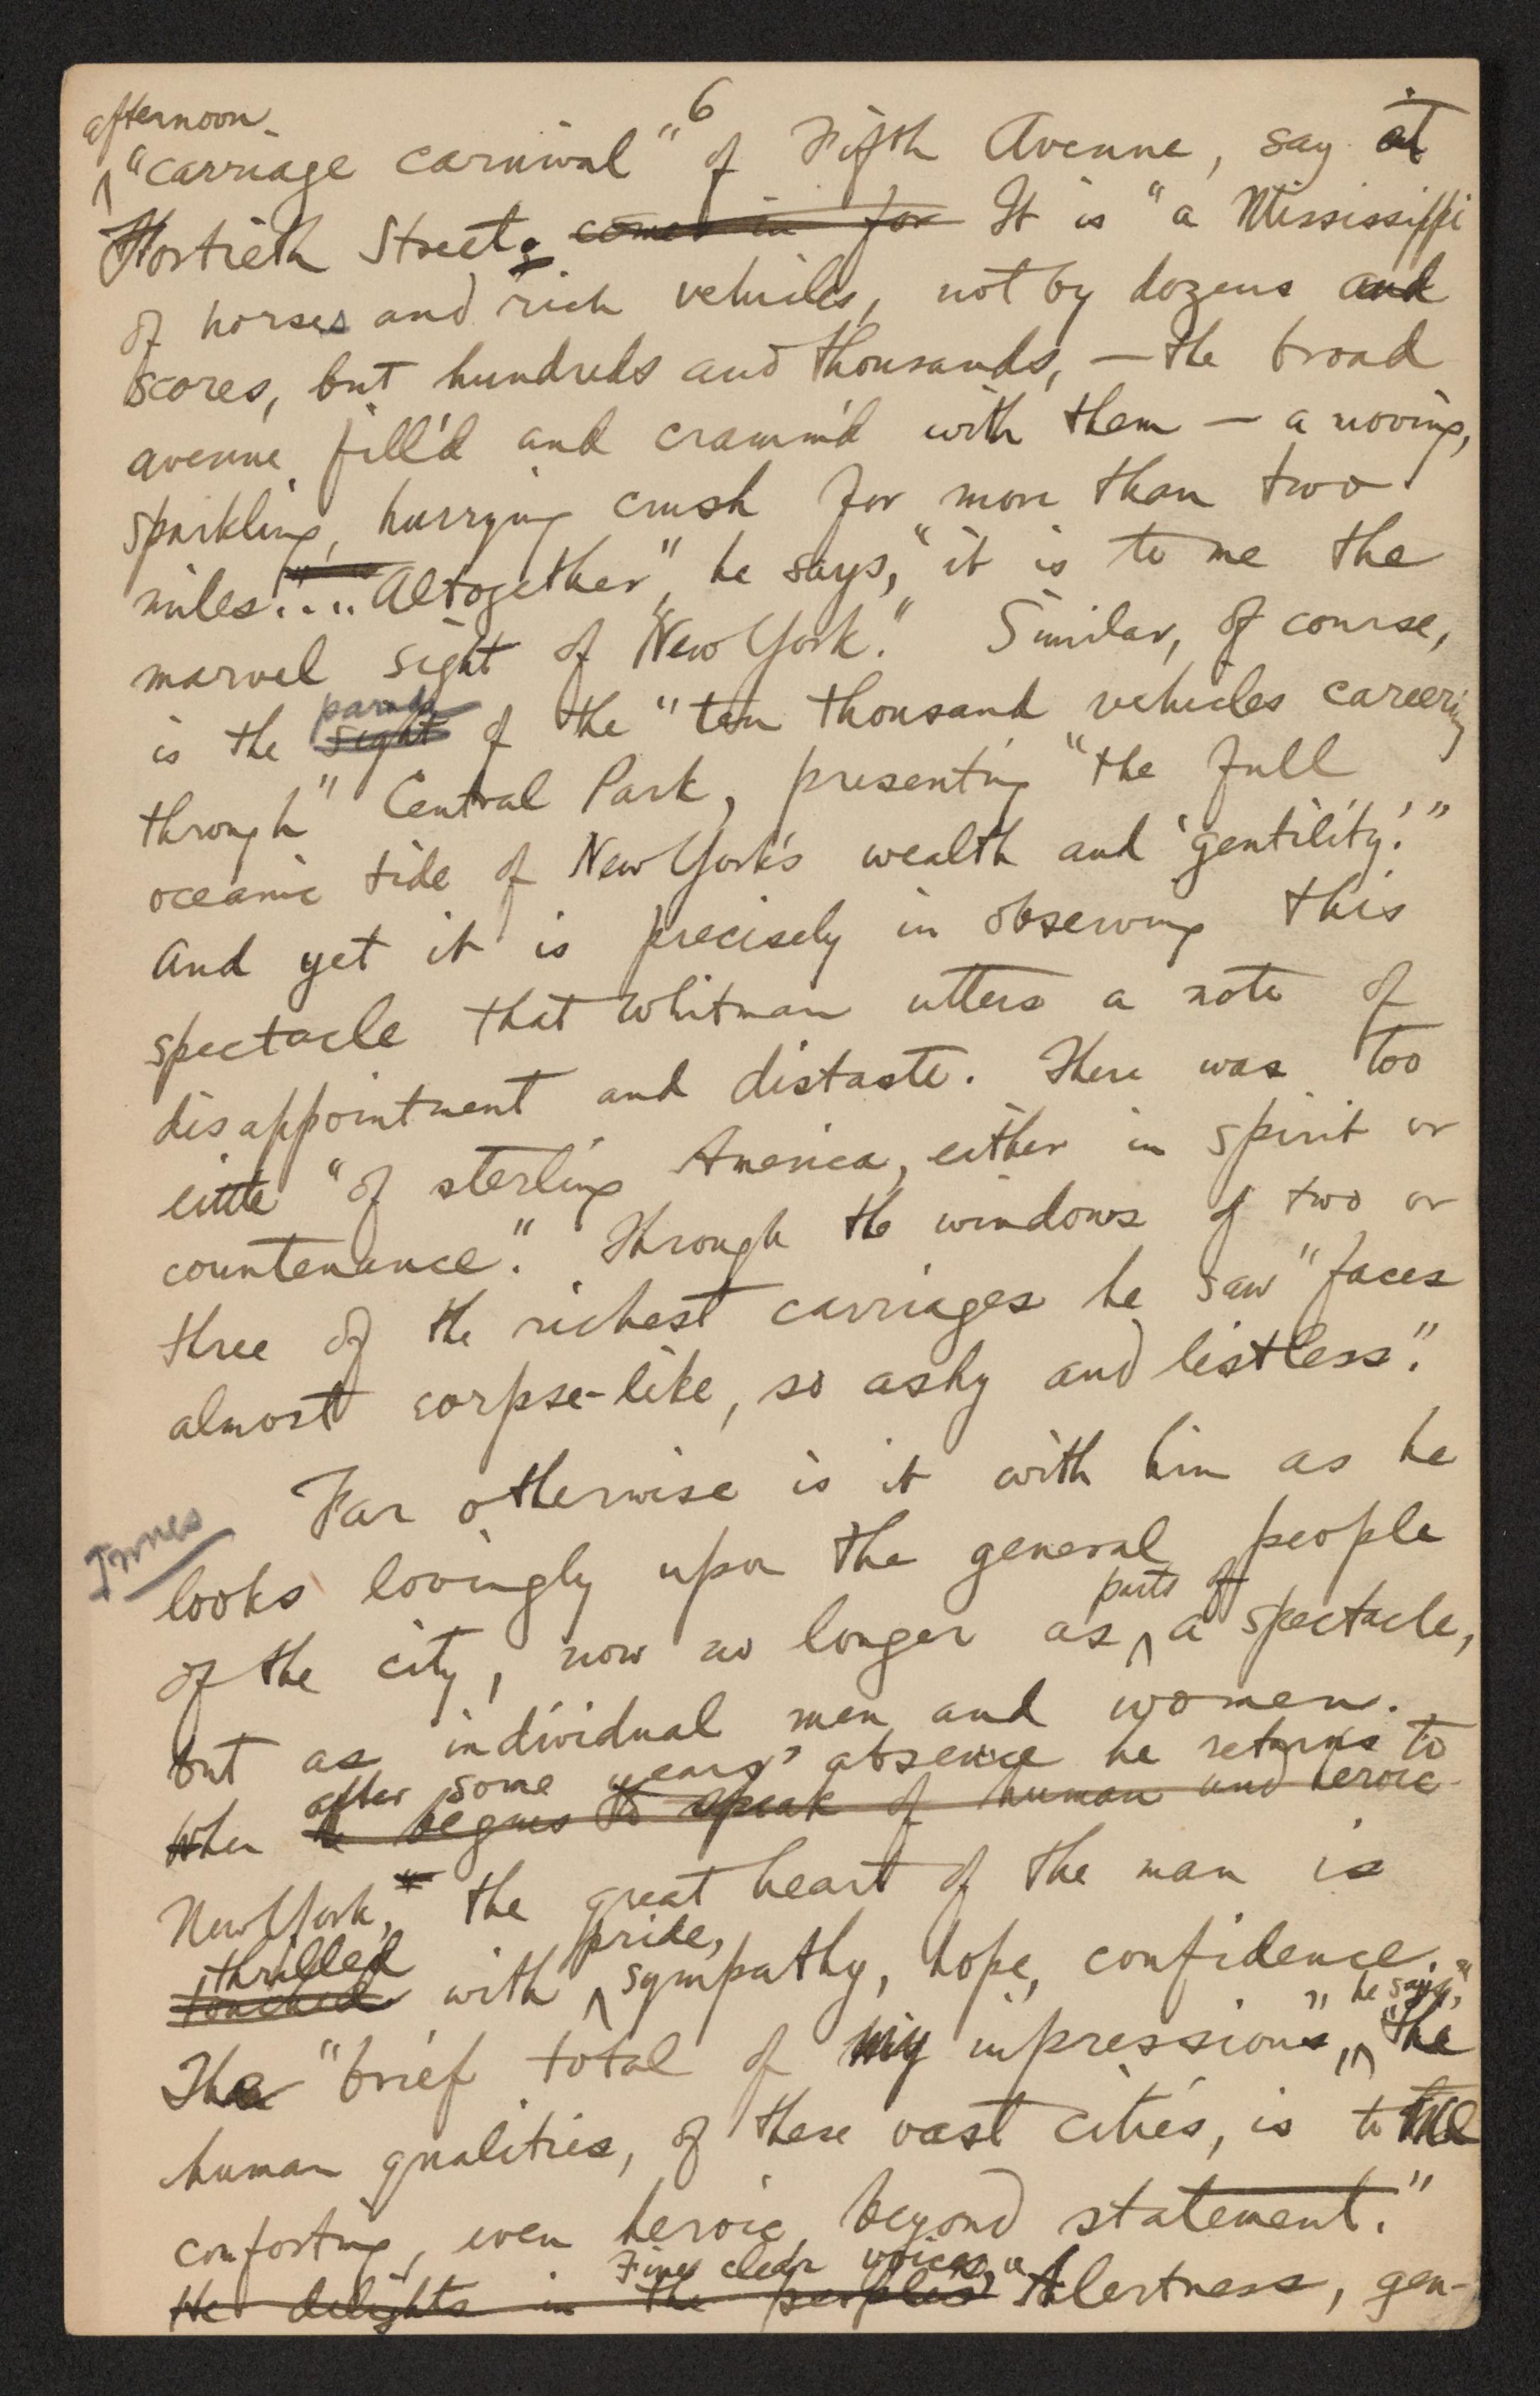 6
afternoon
"carriage carnival" of Fifth Avenue, say at
Fortieth Street. come in for It is "a Mississippi
of horses and rich vehicles, not by dozens and
scores, but hundreds and thousands, — the broad
avenue fill'd and cramm'd with them — a moving,
sparkling, hurrying crush for more than two
miles." ... "Altogether", he says, "it is to me the
marvel sight of New York." Similar, of course,
parade
is the sight of the "ten thousand vehicles careering
through" Central Park, presenting "the full
oceanic tide of New York's wealth and 'gentility.'"
And yet it is precisely in observing this
spectacle that Whitman utters a note of
disappointment and distaste. There was too
little "of sterling America, either in spirit or
countenance." Through the windows of two or
three of the richest carriages he saw "faces
almost corpse-like, so ashy and listless."
Far otherwise is it with him as he
looks lovingly upon the general people
parts of
of the city, now no longer as a spectacle,
but as individual men and women.
after some years' absence he returns to
When he begins to speak of human and heroic
New York, the great heart of the man is
thrilled pride,
touched with sympathy, hope, confidence.
he says,
The "brief total of my impressions," "the
human qualities, of these vast cities, is to me
comforting, even heroic, beyond statement."
Fine clear voices,
He delights in the peoples "Alertness, gen-